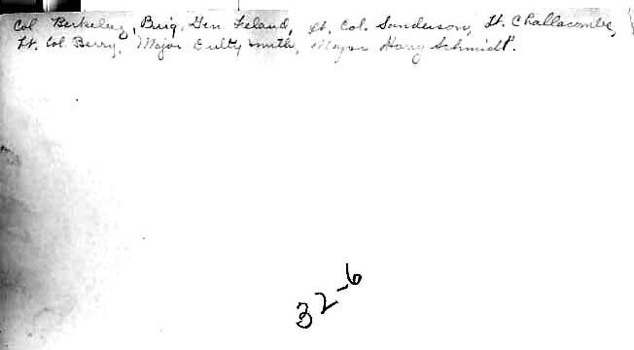 Col Berkeley, Brig. Gen Feland, Lt. Col. Sanderson, Lt. Challacombe,
Lt. Col. Berry, Major Smith, Major Harry Schmidt.
32-6